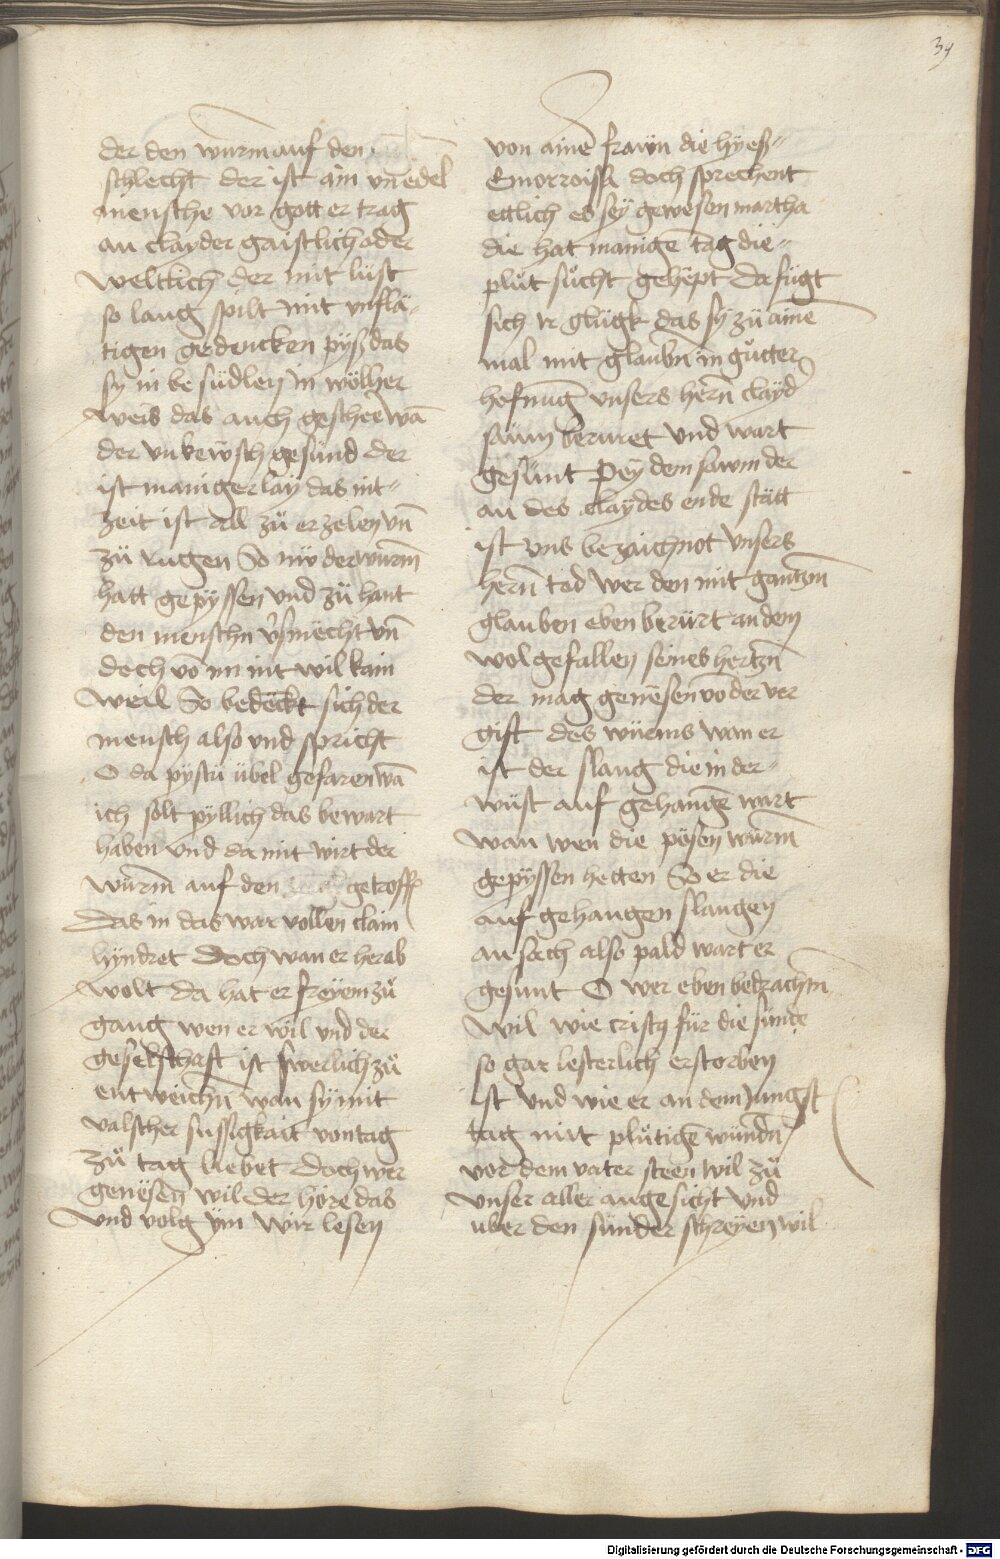 34
der den wurm auf den
schlecht der ist ain vnedel
mensche vor gott er trag
an clayder gaistlich oder
weltlich der mit lust
so lang spilt mit vnflä-
tigen gedencken pyß das
sy in besüdlen in wölher
weis das auch geschee wā
der vnkewsch gesund der
ist maniger lay das nit-
zeit ist all zů erzelen vn̄
zů rugen So nw der wurm̄
hatt gepyssen vnd zů hant
den menschn v̓smëcht vn̄
doch vō im nit wil kain
weil So bedëckt sich der
mensch also vnd spricht
O da pystu übel gefaren wā
ich solt pyllich das bewart
haben vnd da mit wirt der
wurm̄ auf den getroffn̄
Das in das war vollen clain
hyndret Doch wan er herab
wolt da hat er freyen zů
gang wen er wil vnd der
geselschaft ist swerlich zů
entweichn̄ wan sy mit
valscher sussigkait von tag
zů tag liebet Doch wer
genësen wil der höre das
vnd volg ym Wir lesen
von ainē frawn die hyeß-
Emorroissa doch sprechent
ettlich es seÿ gewesen martha
die hat manigē tag die-
plůt sůcht gehëpt da fügt
sich ir glügk das sy zů aine
mal mit glaubn̄ in gůtter
hofnūg vnsers hern̄ clayd̓
sawm berüret vnd wart
gesunt Pey dem sawm der
an des claydes ende stätt
ist vns bezaichnot vnsers
hern̄ tod Wer den mit gantzm̄
glauben eben berürt an dem
wolgefallen seines hertzn̄
der mag genësen vō der ver
gift des würms wan er
ist der slang die in der-
wüst auf gehangē wart
wan wen die pösen würm
gepyssen hetten So er die
auf gehangen slangen
an sach also pald wart er
gesunt O wer eben betrachtn̄
wil wie cristꝰ für die sünde
so gar lesterlich erstorben
ist vnd wie er an dem jungst
tag mit plůtigē wundn̄
vor dem vater steen wil zů
vnser aller angesicht vnd
uber den sünder schreyen wil
Digitalisierung gefördert durch die Deutsche Forschungsgemeinschaft - DFG